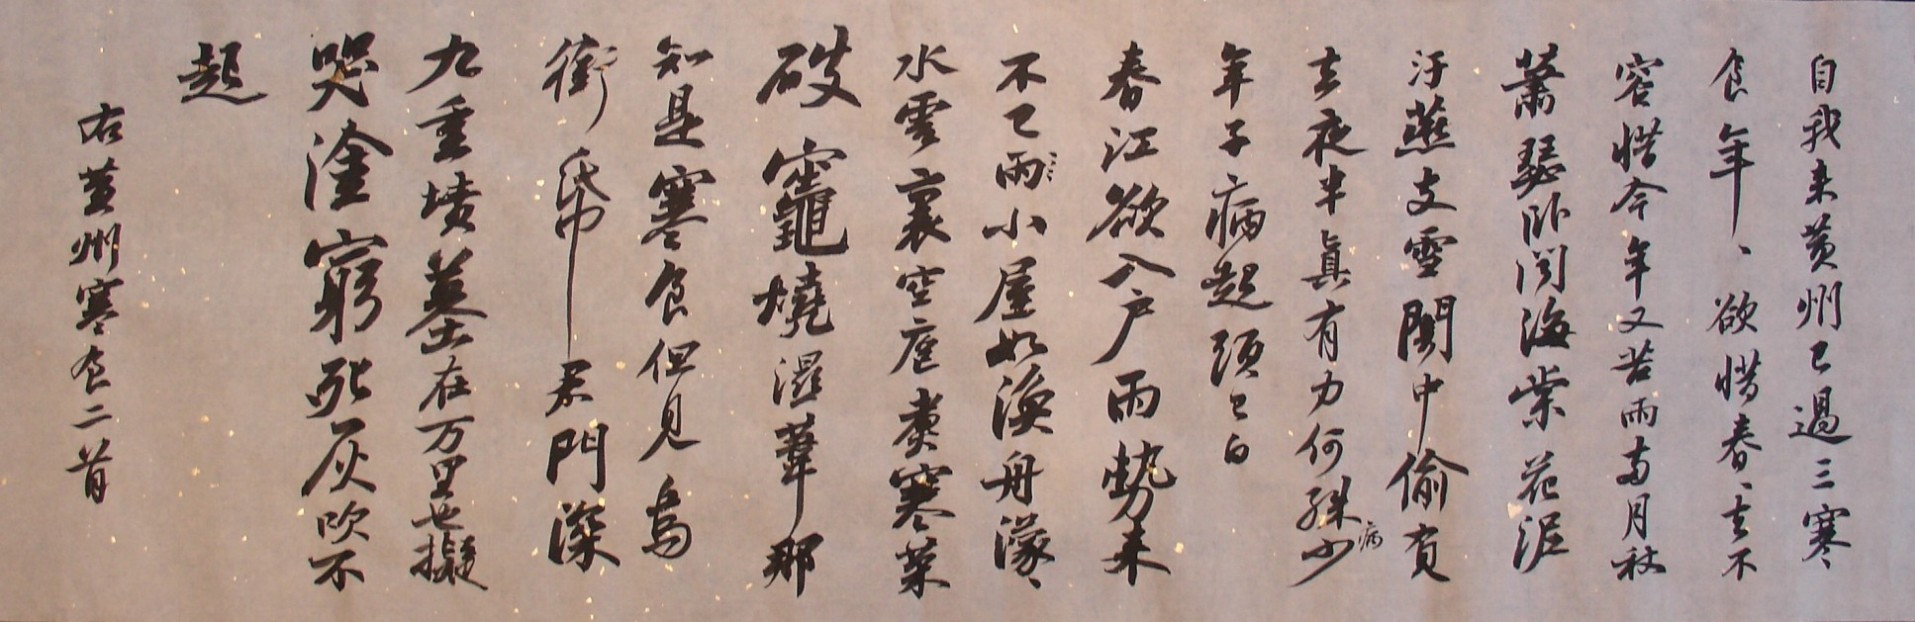 自我来黄州已過三寒
食年、欲惜春、去不
容惜今年又苦雨两月秋
蕭瑟卧聞海棠花泥
汙燕支雪闇中偷負
去夜半真有力何殊少
病
年子病起頭已白
春江欲入户雨勢来
不已雨小屋如漁舟濛、
水雲裏空庖煮寒菜
破竈燒濕葦那
知是寒食但見烏
銜帋君門深
九重墳墓在万里也擬
哭塗窮死灰吹不
起
右黄州寒食二首